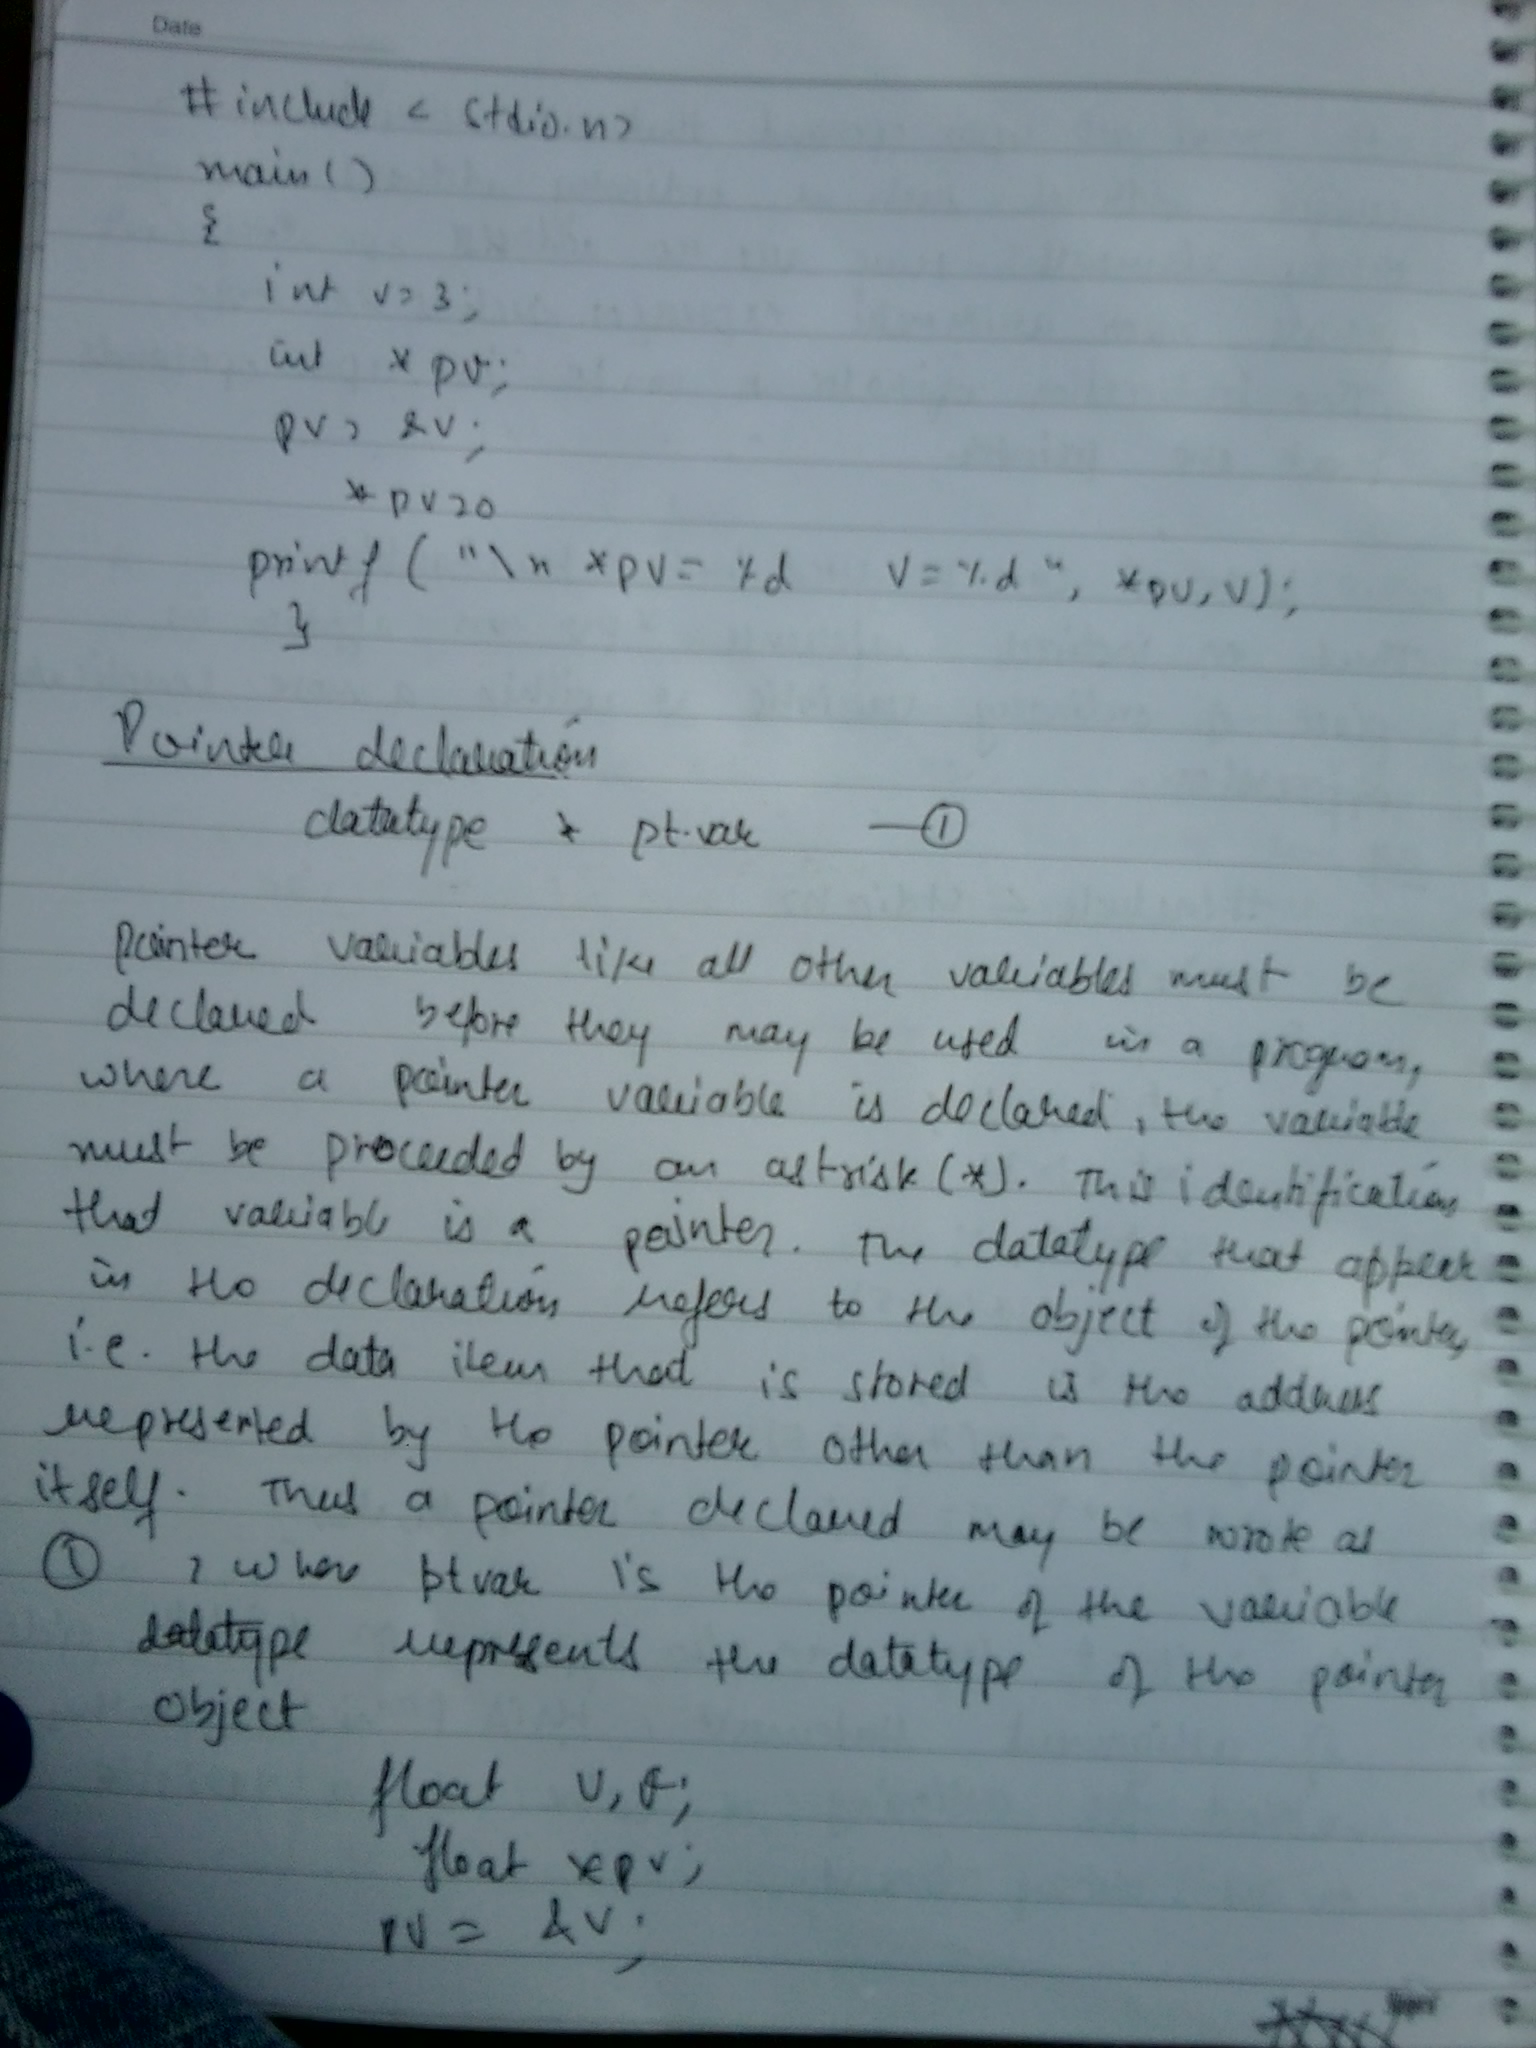 Date
#include < stdio.h>
main()
{
int v=3;
int *pv;
pv= &v;
*pv=0
printf ("\n *pv= %d v=%d", *pv, v);
}
Pointer declaration
datatype * pt.var —①
pointer variables like all other variables must be
declared before they may be used in a program,
where a pointer variable is declared, the variable
must be proceeded by an astrisk (*). This identification
that variable is a pointer. The datatype that appear
in the declaration refers to the object of the pointer,
i.e. the data item that is stored is the address
represented by the pointer other than the pointer
itself. Thus a pointer declared may be wrote as
① , where ptvar is the pointer of the variable
datatype represents the datatype of the pointer
object
float v,
float *pv;
pv = &v;